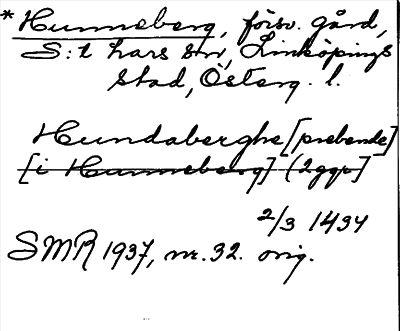 *Hunneberg, försv. gård,
S:t Lars sn, Linköpings
stad, Österg. l.
Hundaberghe [prebende]
[i Hunneberg] (2ggr)
2/3 1434
SMR 1937, nr. 32. orig.